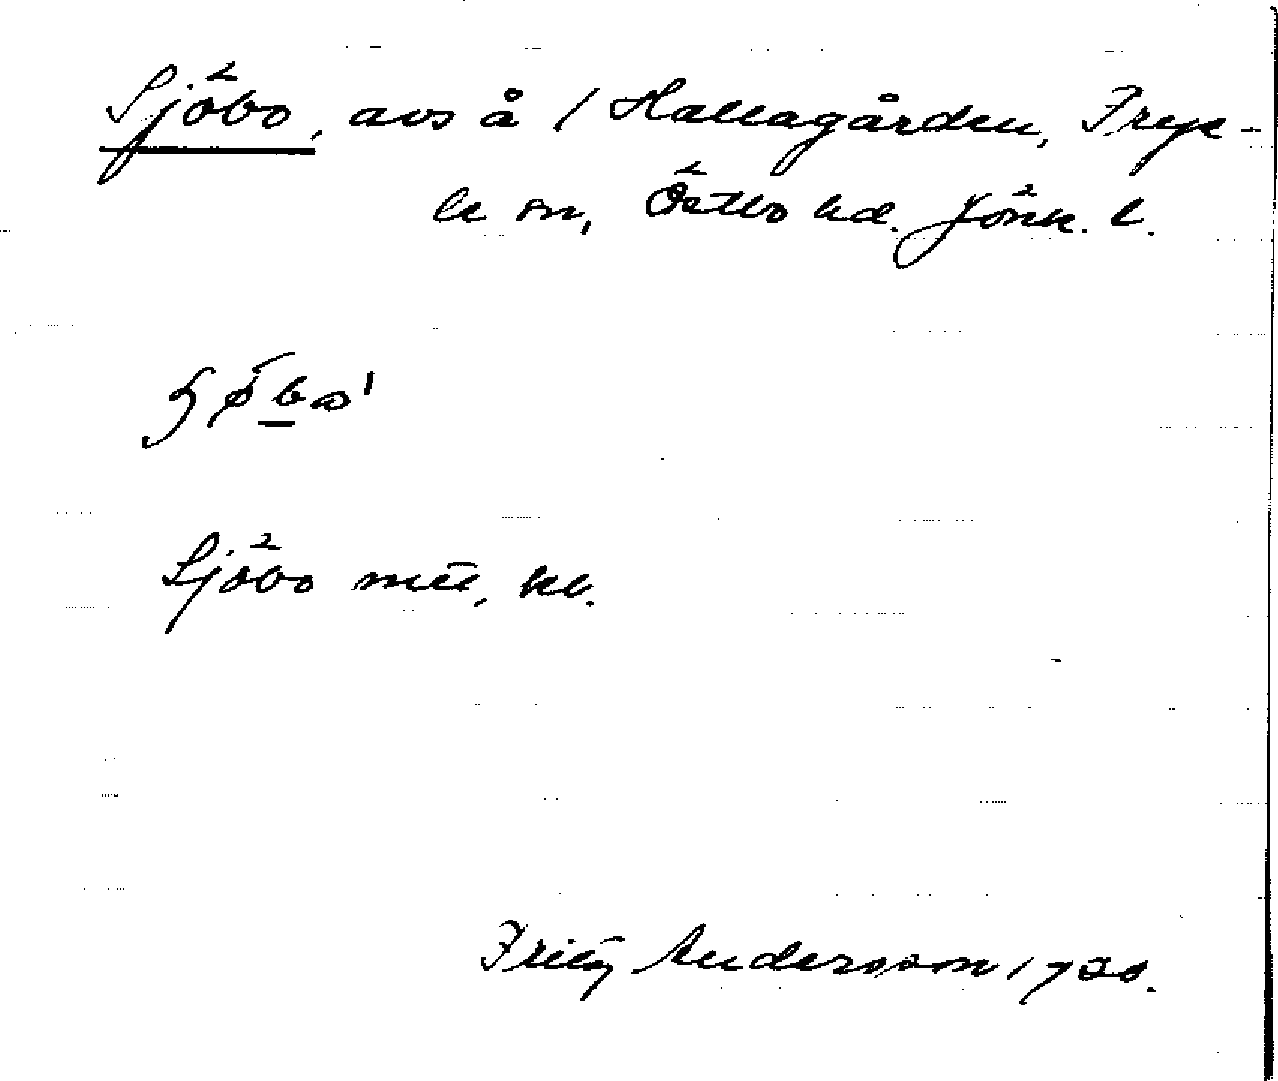 Sjöbo, avs å 1 Hallagården, Frye-
le sn, Östbo hd. Jönk. l.
Sjöbo mtl, kb.
Fritz Andersson 1920.